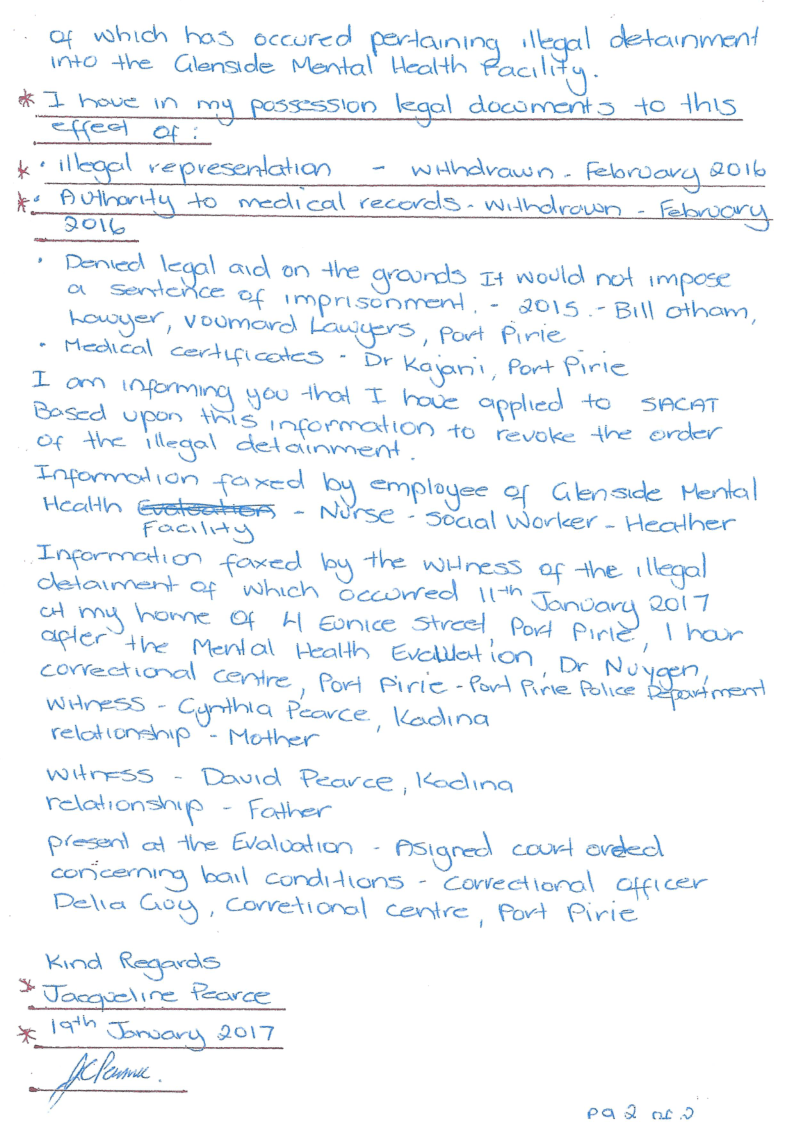 of which has occured pertaining illegal detainment
into the Glenside Mental Health Facility.
* I have in my possession legal documents to this
effect of :
* • illegal representation - withdrawn - February 2016
* • Authority to medical records - withdrawn - February
2016
• Denied legal aid on the grounds It would not impose
a sentence of imprisonment. - 2015. - Bill Otham,
Lawyer, Voumard Lawyers, Port Pirie
• Medical certificates - Dr Kajani, Port Pirie
I am informing you that I have applied to SACAT
Based upon this information to revoke the order
of the illegal detainment.
Information faxed by employee of Glenside Mental
Health Evaluation - Nurse - Social Worker - Heather
Facility
Information faxed by the witness of the illegal
detaiment of which occurred 11th January 2017
at my home of 4 Eunice Street, Port Pirie, 1 hour
after the Mental Health Evaluation, Dr Nuygen,
correctional centre, Port Pirie - Port Pirie Police Department
witness - Cynthia Pearce, Kadina
relationship - Mother
witness - David Pearce, Kadina
relationship - Father
present at the Evaluation - Asigned court orded
concerning bail conditions - correctional officer
Delia Goy, corretional centre, Port Pirie
Kind Regards
* Jacqueline Pearce
* 19th January 2017
JCPearce.
pg 2 of 2